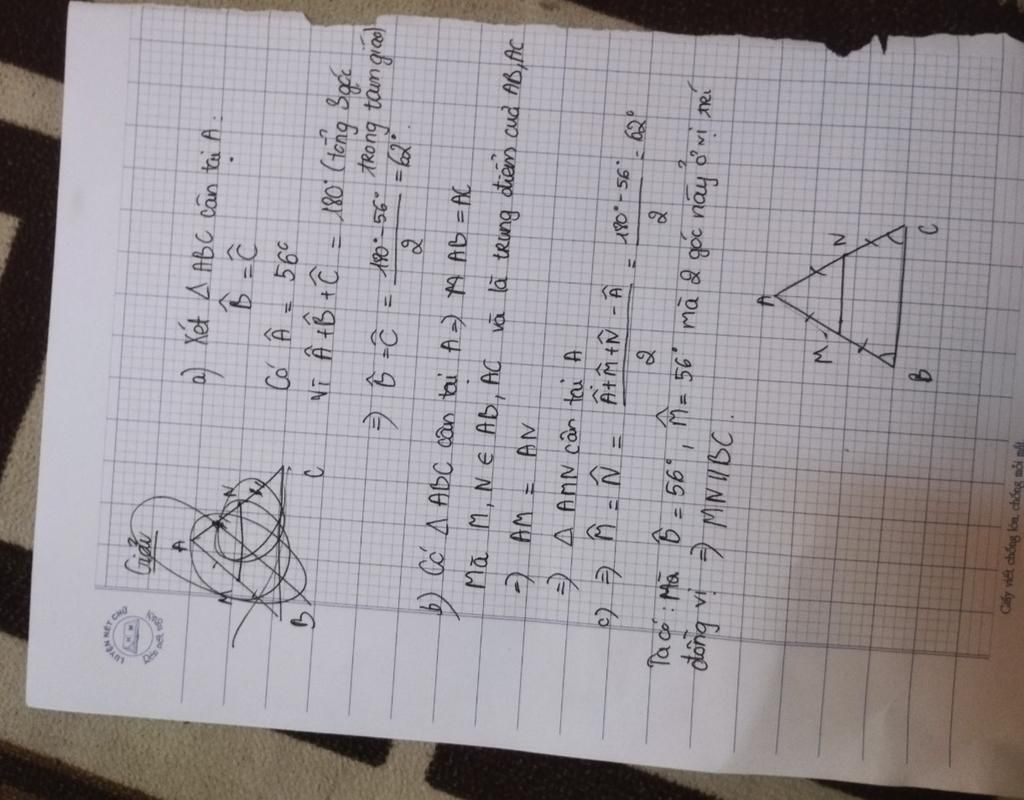 Giải
A
M
N
B
C
a) Xét Δ ABC cân tại A:
B̂ = Ĉ
Có Â = 56°
Vì Â + B̂ + Ĉ = 180° (tổng 3 góc trong tam giác)
=> B̂ = Ĉ = (180° - 56°) / 2 = 62°.
b) Có Δ ABC cân tại A => AB = AC
Mà M, N ∈ AB, AC và là trung điểm cuả AB, AC
=> AM = AN
=> Δ AMN cân tại A
c) => M̂ = N̂ = (Â + M̂ + N̂ - Â) / 2 = (180° - 56°) / 2 = 62°
Ta có: Mà B̂ = 56°, M̂ = 56° mà 2 góc này ở vị trí
đồng vị => MN // BC.
A
M
N
B
C
LUYỆN NÉT CHỮ
Giấy viết chống lóa, chống mỏi mắt